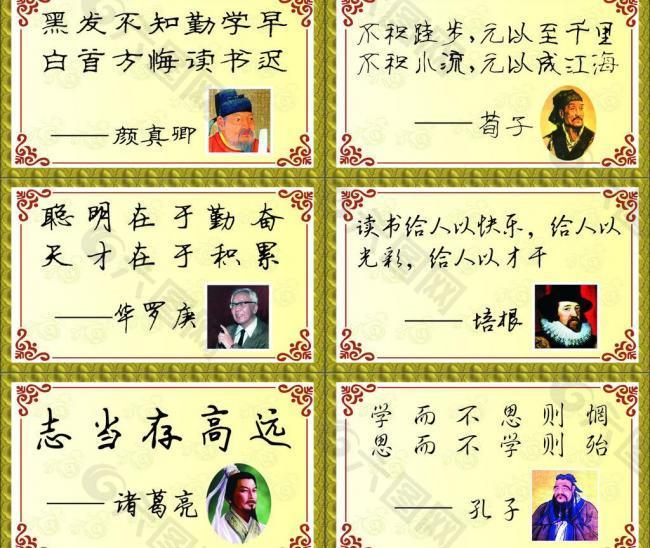 黑发不知勤学早
白首方悔读书迟
——颜真卿
不积跬步,无以至千里
不积小流,无以成江海
——荀子
聪明在于勤奋
天才在于积累
——华罗庚
读书给人以快乐，给人以
光彩，给人以才干
——培根
志当存高远
——诸葛亮
学而不思则惘
思而不学则殆
——孔子